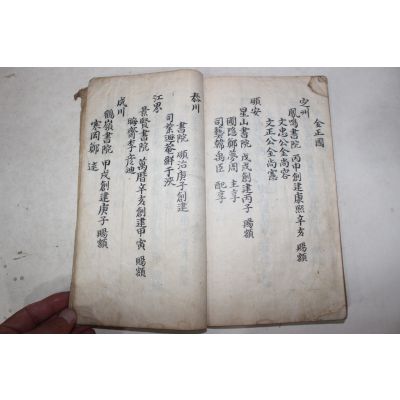 金正國
定州
鳳鳴書院 丙申創建康熙辛亥 賜額
文忠公金尚容
文正公金尚憲
順安
星山書院 戊戌創建丙子 賜額
圃隱鄭夢周 主享
司藝韓禹臣 配享
泰川
書院 順治庚子創建
司業遯菴鮮于浹
江界
景賢書院 萬曆辛亥創建甲寅 賜額
晦齋李彦迪
成川
鶴嶺書院 甲戌創建庚子 賜額
寒岡鄭逑